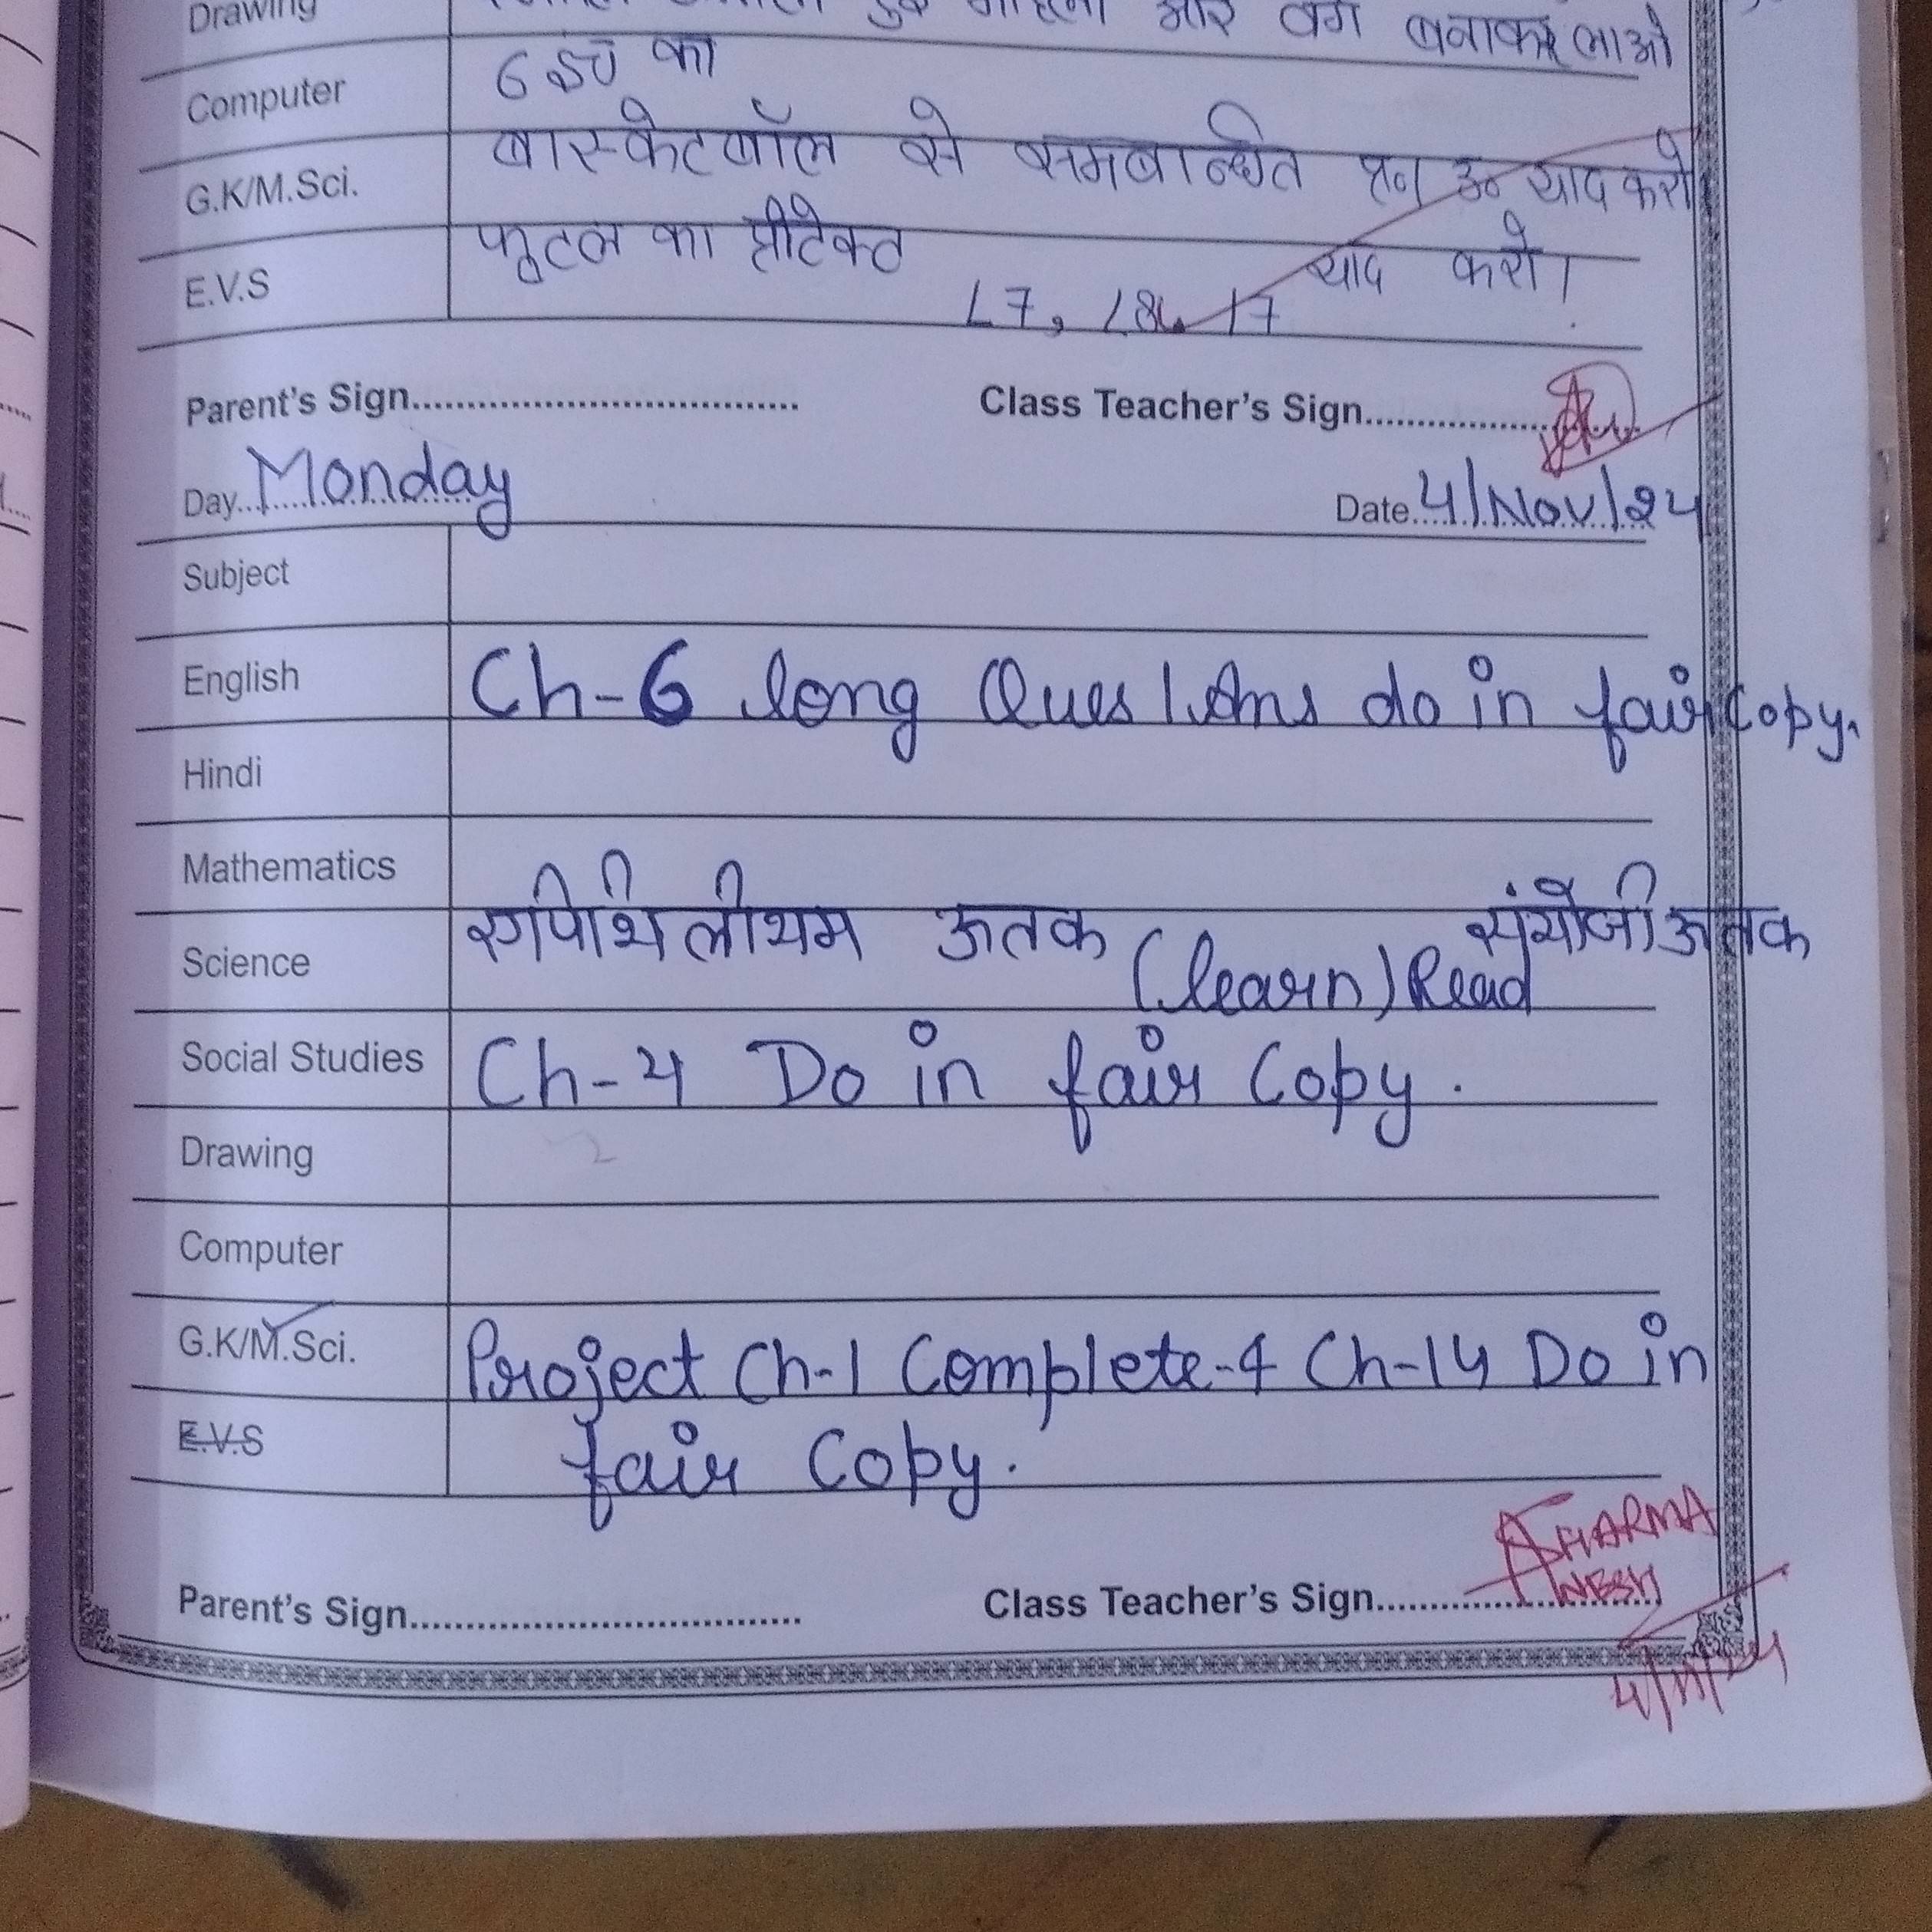 Drawing और वर्ग बनाकर लाओ
Computer का
G.K/M.Sci. बास्केटबॉल से समबान्धित याद करो
E.V.S का याद करो।
L7,
Parent's Sign.................................... Class Teacher's Sign....................
Day Monday Date 4/Nov/24
Subject
English Ch-6 long Ques/Ans do in fair copy.
Hindi
Mathematics
Science ऊतक (learn) Read संयोजी ऊतक
Social Studies Ch-4 Do in fair Copy.
Drawing
Computer
G.K/M.Sci. Project Ch-1 Complete-4 Ch-14 Do in
E.V.S fair Copy.
Parent's Sign.................................... Class Teacher's Sign.................... SHARMA
4/11/24